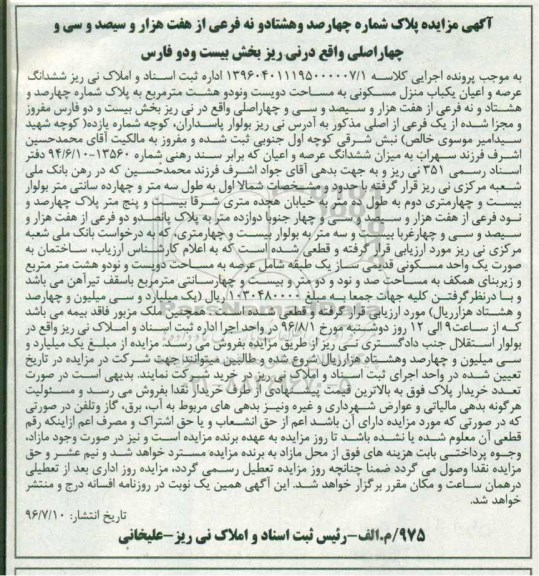 آگهی مزایده پلاک شماره چهارصد وهشتادو نه فرعی از هفت هزار و سیصد و سی و
چهاراصلی واقع درنی ریز بخش بیست ودو فارس
به موجب پرونده اجرایی کلاسه ۱۳۹۶۰۴۰۱۱۱۹۵۰۰۰۰۰۷/۱ اداره ثبت اسناد و املاک نی ریز ششدانگ
عرصه و اعیان یکباب منزل مسکونی به مساحت دویست ونودو هشت مترمربع به پلاک شماره چهارصد و
هشتاد و نه فرعی از هفت هزار و سیصد و سی و چهاراصلی واقع در نی ریز بخش بیست و دو فارس مفروز
و مجزا شده از یک فرعی از اصلی مذکور به آدرس نی ریز بولوار پاسداران، کوچه شماره یازده( کوچه شهید
سیدامیر موسوی خالص) نبش شرقی کوچه اول جنوبی ثبت شده و مفروز به مالکیت آقای محمدحسین
اشرف فرزند سهراب به میزان ششدانگ عرصه و اعیان که برابر سند رهنی شماره ۱۳۵۶۰-۹۴/۶/۱۰ دفتر
اسناد رسمی ۳۵۱ نی ریز و به جهت بدهی آقای جواد اشرف فرزند محمدحسین که در رهن بانک ملی
شعبه مرکزی نی ریز قرار گرفته با حدود و مشخصات شمالا اول به طول سه متر و چهارده سانتی متر بولوار
بیست و چهارمتری دوم به طول ده متر به خیابان هجده متری شرقا بیست و پنج متر پلاک چهارصد و
نود فرعی از هفت هزار و سیصد و سی و چهار جنوبا دوازده متر به پلاک پانصدو دو فرعی از هفت هزار و
سیصد و سی و چهارغربا بیست و سه متر به بولوار بیست و چهارمتری، که به درخواست بانک ملی شعبه
مرکزی نی ریز مورد ارزیابی قرار گرفته و قطعی شده است که به اعلام کارشناس ارزیاب، ساختمان به
صورت یک واحد مسکونی قدیمی ساز یک طبقه شامل عرصه به مساحت دویست و نودو هشت متر مربع
و زیربنای همکف به مساحت صد و نود و دو متر و بیست و چهارسانتی مترمربع باسقف تیرآهن می باشد
و با درنظرگرفتن کلیه جهات جمعا به مبلغ ۱۰۳۰۴۸۰۰۰۰ریال (یک میلیارد و سی میلیون و چهارصد
و هشتاد هزارریال) مورد ارزیابی قرار گرفته و قطعی شده است. همچنین ملک مزبور فاقد بیمه می باشد
که از ساعت۹ الی ۱۲ روز دوشنبه مورخ ۹۶/۸/۱ در واحد اجرا اداره ثبت اسناد و املاک نی ریز واقع در
بولوار استقلال جنب دادگستری نی ریز از طریق مزایده بفروش می رسد. مزایده از مبلغ یک میلیارد و
سی میلیون و چهارصد وهشتاد هزارریال شروع شده و طالبین میتوانند جهت شرکت در مزایده در تاریخ
تعیین شده در واحد اجرای ثبت اسناد و املاک نی ریز در خرید شرکت نمایند. بدیهی است در صورت
تعدد خریدار پلاک فوق به بالاترین قیمت پیشنهادی از طرف خریدار نقدا بفروش می رسد و مسئولیت
هرگونه بدهی مالیاتی و عوارض شهرداری و غیره ونیز بدهی های مربوط به آب، برق، گاز وتلفن در صورتی
که در صورتی که مورد مزایده دارای آن باشد اعم از حق انشعاب و یا حق اشتراک و مصرف اعم ازاینکه رقم
قطعی آن معلوم شده یا نشده باشد تا روز مزایده به عهده برنده مزایده است و نیز در صورت وجود مازاد،
وجوه پرداختی بابت هزینه های فوق از محل مازاد به برنده مزایده مسترد خواهد شد و نیم عشر و حق
مزایده نقدا وصول می گردد ضمنا چنانچه روز مزایده تعطیل رسمی گردد، مزایده روز اداری بعد از تعطیلی
درهمان ساعت و مکان مقرر برگزار خواهد شد. این آگهی همین یک نوبت در روزنامه افسانه درج و منتشر
خواهد شد.
تاریخ انتشار: ۹۶/۷/۱۰
۹۷۵/م.الف-رئیس ثبت اسناد و املاک نی ریز-علیخانی